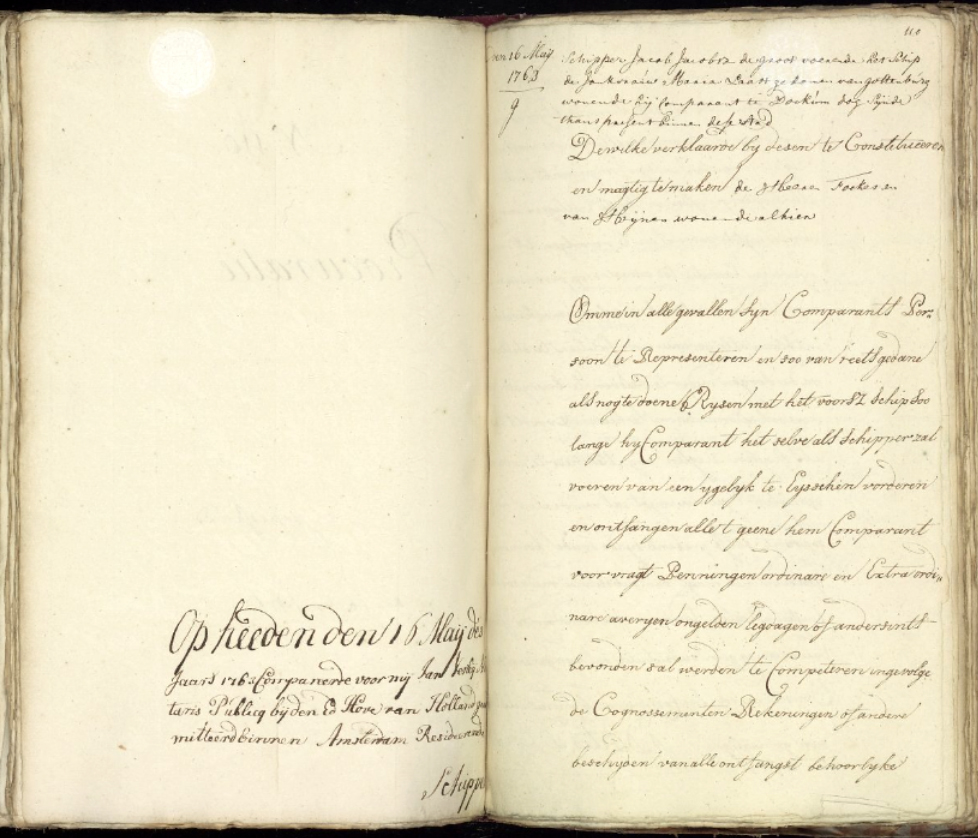 Op heeden den 16 Maij des
Jaars 1763 Compareerde voor mij Jan
taris Publicq bij den Ed Hove van Holland
mitteerd binnen Amsterdam Resideerende
Schipp
110
den 16 Maij
1763
9
Schipper Jacob Jacobsz de groot voerende het Schip
de Jonkvrouw Maria Laast gekomen van gottenburg
wonende hij Comparant te Dockum dog Sijnde
thans present binnen dese Stad
Dewelke verklaarde by desen te Constitueeren
en magtig te maken de Heeren Fockes en
van Heijnen wonende alhier
Omme in alle gevallen syn Comparants Per-
soon te Representeren en soo van reets gedane
als nog te doene Rysen met het voorsz schip soo
lange hy Comparant het selve als schipper zal
voeren van een ygelyk te Eysschen vorderen
en ontfangen alle t geene hem Comparant
voor vragt Penningen ordinare en Extra ordi-
nare averyen ongelden legdagen of andersints
bevonden sal werden te Competeren ingevolge
de Cognossementen Rekeningen of andere
beschyden van alle ontfangst behoorlyke